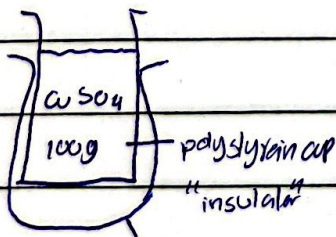 CuSO4
100g
polystyrein cup
"insulator"